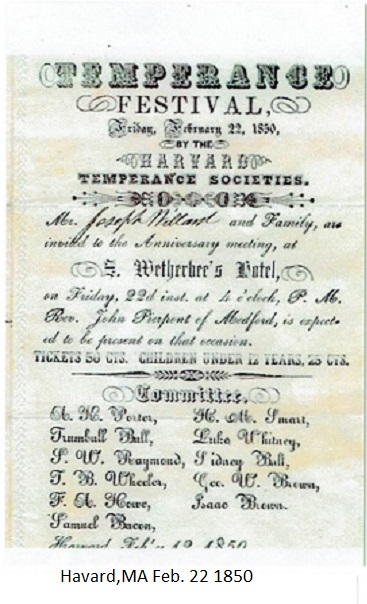 TEMPERANCE
FESTIVAL,
Friday, February 22, 1850,
BY THE
HARVARD
TEMPERANCE SOCIETIES.
Mr. Joseph Willard and Family, are
invited to the Anniversary meeting, at
S. Wetherbee's Hotel,
on Friday, 22d inst. at 4 o'clock, P. M.
Rev. John Pierpont of Medford, is expect-
ed to be present on that occasion.
TICKETS 50 CTS. CHILDREN UNDER 12 YEARS, 25 CTS.
Committee.
A. H. Porter, H. M. Smart,
Trumbull Bull, Luke Whitney,
S. W. Raymond, Sidney Bull,
T. B. Wheeler, Geo. W. Brown,
F. A. Howe, Isaac Brown.
Samuel Bacon,
Harvard, Feb'y 12, 1850
Havard,MA Feb. 22 1850